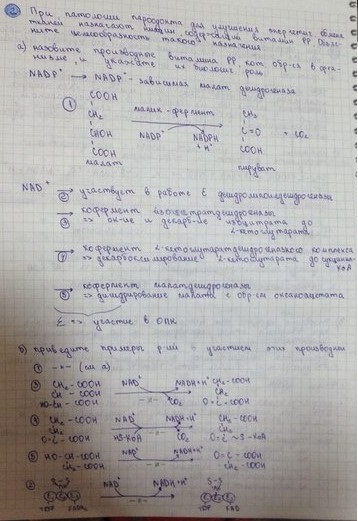 ② При патологии пародонта для улучшения энергетич. обмена
ткани назначают витамин PP. Объяс-
ните целесообразность такого назначения
а) назовите производные витамина PP, кот. обр-ся в орга-
низме и укажите их биолог. роль
NADP⁺ → NADP⁺-зависимая малат дегидрогеназа
① COOH CH₂ CHOH COOH малат
малик-фермент
NADP⁺ NADPH + H⁺
CH₃ C=O COOH + CO₂
пируват
NAD⁺ → участвует в работе E
②
→ кофермент изоцитратдегидрогеназы
③ => ок-ие и декарб-ие изоцитрата до
α-кетоглутарата
→ кофермент α-кетоглутаратдегидрогеназного комплекса
④ => декарбоксилирование α-кетоглутарата до
КоА
→ кофермент малатдегидрогеназы
⑤ => дегидрирование малата с обр-ем оксалоацетата
=> участие в
б) приведите примеры р-ий с участием этих производных
① -"- (см а)
③ CH₂-COOH NAD⁺ NADH+H⁺ CH₂-COOH
CH-COOH CH₂
HO-CH-COOH CO₂ O=C-COOH
④ CH₂-COOH NAD⁺ NADH+H⁺ CH₂-COOH
CH₂ CH₂
O=C-COOH HS-КоА CO₂ O=C~S-КоА
⑤ HO-CH-COOH NAD⁺ NADH+H⁺ O=C-COOH
CH₂-COOH CH₂-COOH
② S-S NAD⁺ NADH+H⁺ S-S
FADH₂ FAD